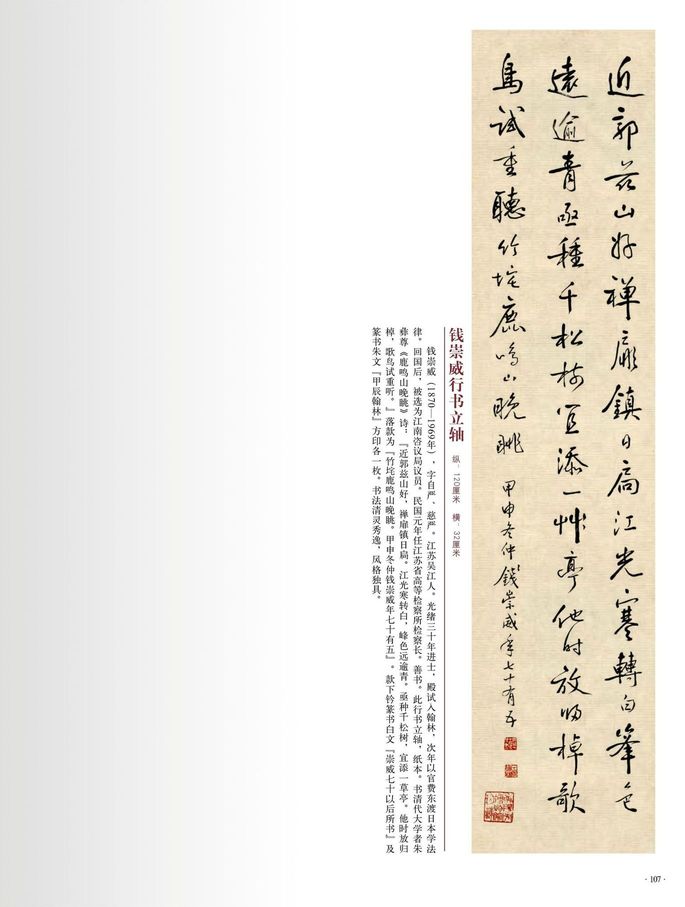 近郭茲山好禪扉鎮日扃江光寒轉白峯色
遠逾青亟種千松樹宜添一艸亭他时放归棹歌
鳥試重聽竹垞鹿鳴山晚眺 甲申冬仲錢崇威年七十有五
钱崇威行书立轴
纵：120厘米 横：32厘米
钱崇威（1870—1969年），字自严、慈严。江苏吴江人。光绪三十年进士，殿试入翰林，次年以官费东渡日本学法
律。回国后，被选为江南咨议局议员。民国元年任江苏省高等检察所检察长。善书。此行书立轴，纸本。书清代大学者朱
彝尊《鹿鸣山晚眺》诗：『近郭兹山好，禅扉镇日扃。江光寒转白，峰色远逾青。亟种千松树，宜添一草亭。他时放归
棹，歌鸟试重听。』落款为『竹垞鹿鸣山晚眺。甲申冬仲钱崇威年七十有五』。款下钤篆书白文『崇威七十以后所书』及
篆书朱文『甲辰翰林』方印各一枚。书法清灵秀逸，风格独具。
· 107 ·